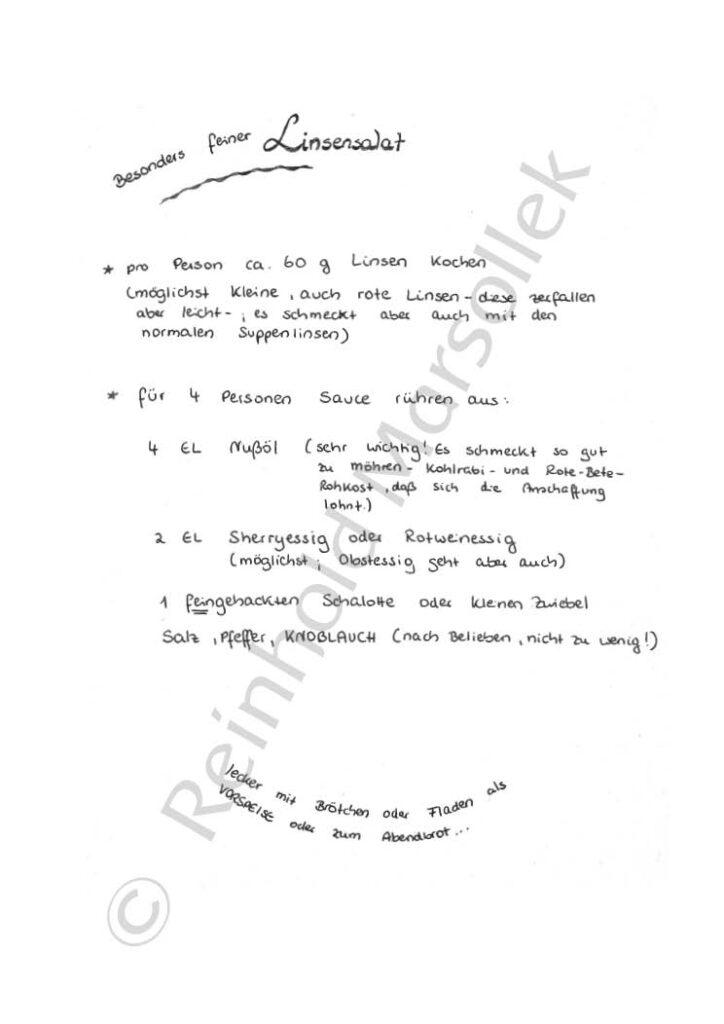 Besonders feiner Linsensalat
* pro Person ca. 60 g Linsen kochen
(möglichst kleine, auch rote Linsen - diese zerfallen
aber leicht -, es schmeckt aber auch mit den
normalen Suppenlinsen)
* für 4 Personen Sauce rühren aus:
4 EL Nußöl (sehr wichtig! Es schmeckt so gut
zu Möhren- Kohlrabi- und Rote-Bete-
Rohkost, daß sich die Anschaffung
lohnt.)
2 EL Sherryessig oder Rotweinessig
(möglichst; Obstessig geht aber auch)
1 feingehackten Schalotte oder kleinen Zwiebel
Salz, Pfeffer, KNOBLAUCH (nach Belieben, nicht zu wenig!)
lecker mit Brötchen oder Fladen als
VORSPEISE oder zum Abendbrot...
© Reinhold Marsollek